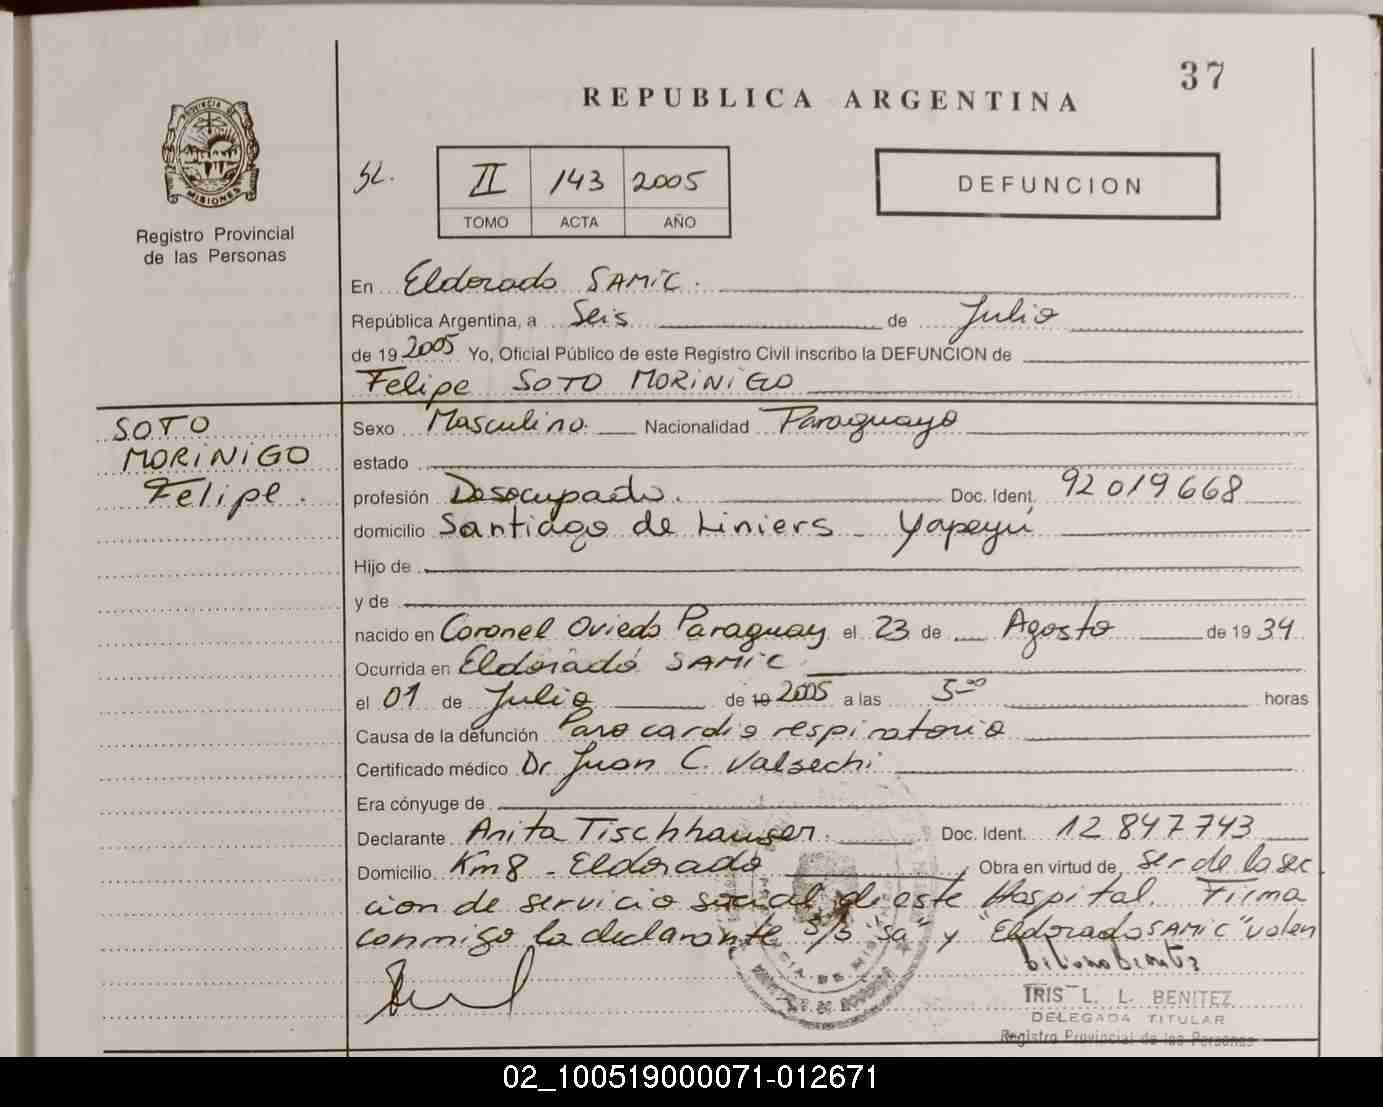 37
REPUBLICA ARGENTINA
PROVINCIA DE
MISIONES
Registro Provincial
de las Personas
II 143 2005
TOMO ACTA AÑO
DEFUNCION
En Eldorado SAMIC.
República Argentina, a Seis de Julio
de 19 2005 Yo, Oficial Público de este Registro Civil inscribo la DEFUNCION de
Felipe SOTO MORINIGO
SOTO
MORINIGO
Felipe.
Sexo Masculino. Nacionalidad Paraguayo
estado
profesión Desocupado. Doc. Ident. 92 019668
domicilio Santiago de Liniers - Yapeyú
Hijo de
y de
nacido en Coronel Oviedo Paraguay el 23 de Agosto de 19 34
Ocurrida en Eldorado SAMIC
el 01 de Julio de 19 2005 a las 5⁰⁰ horas
Causa de la defunción Paro cardio respiratorio
Certificado médico Dr Juan C. Valsechi
Era cónyuge de
Declarante Anita Tischhauser. Doc. Ident. 12 847743
Domicilio Km 8 - Eldorado Obra en virtud de ser de la sec
cion de servicio social de este Hospital. Firma
conmigo la declarante S/b "sa" y "Eldorado SAMIC" valen
IRIS L. L. BENITEZ
DELEGADA TITULAR
Registro Provincial de las Personas
02_100519000071-012671